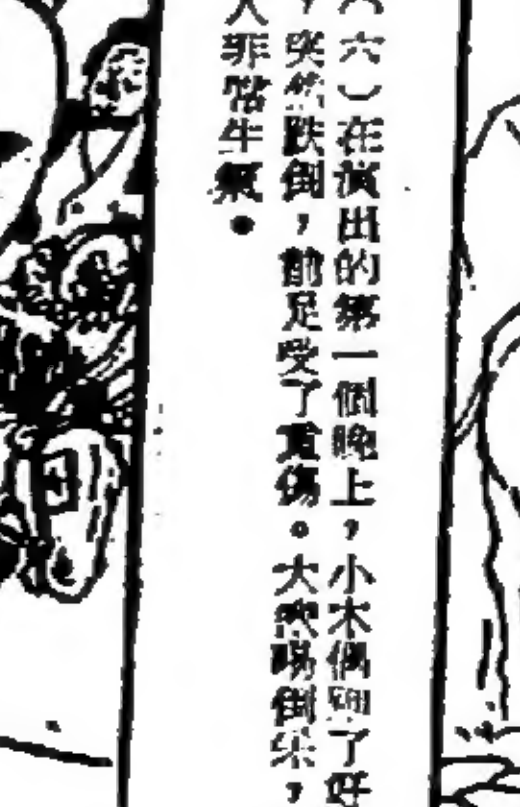 （六）在演出的第一個晚上，小木偶了好
，突然跌倒，前足受了重傷。大喝倒采，
人非常生氣。